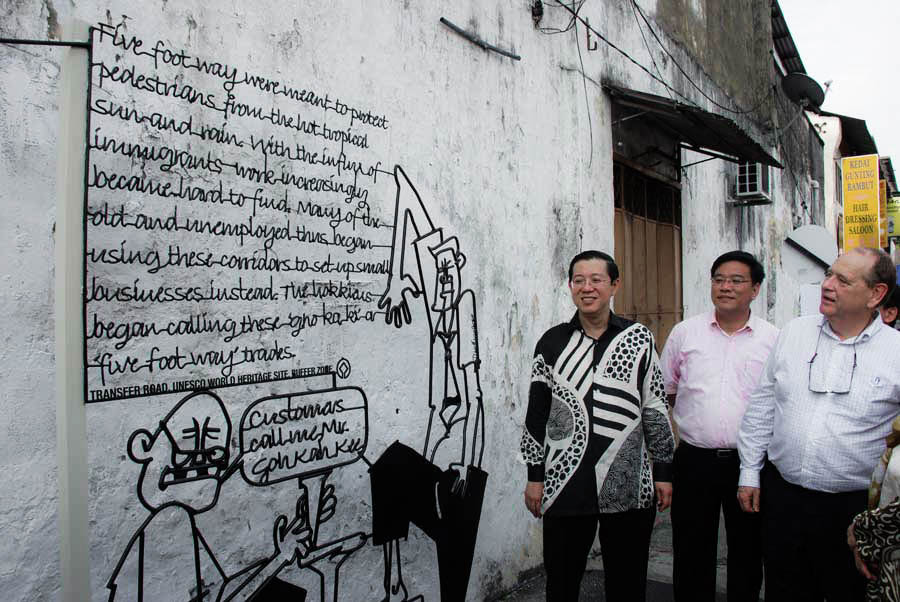 Five foot way were meant to protect
pedestrians from the hot tropical
sun and rain. With the influx of
immigrants work increasingly
became hard to find. Many of the
old and unemployed thus began
using these corridors to set up small
businesses instead. The hokkiens
began calling these 'gho ka ki' or
'five foot way' trades.
TRANSFER ROAD, UNESCO WORLD HERITAGE SITE, BUFFER ZONE
Customers
call me Mr.
Goh Kah Kee
KEDAI
GUNTING
RAMBUT
HAIR
DRESSING
SALOON